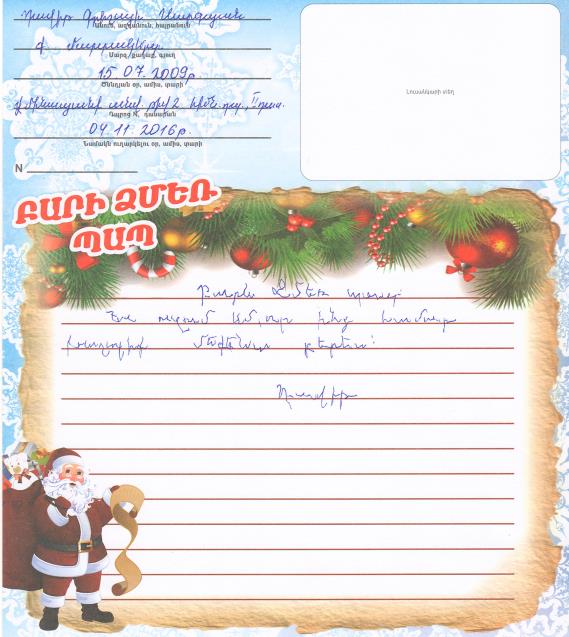 Դավիթ Գրիշայի Սարգսյան
Անուն, ազգանուն, հայրանուն
գ.
Մարզ, քաղաք, գյուղ
15.07.2009թ.
Ծննդյան օր, ամիս, տարի
թիվ 2 հիմն. դպ., դաս.
Դպրոց N, դասարան
04.11.2016թ.
Նամակն ուղարկելու օր, ամիս, տարի
N
Լուսանկարի տեղ
ԲԱՐԻ ՁՄԵՌ
ՊԱՊ
Բարև Ձմեռ պապի
Ես ուզում եմ, որ ինձ համար
մեքենա բերես:
Դավիթ